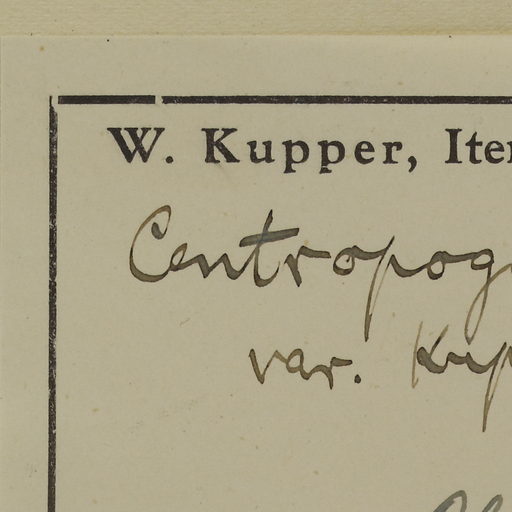 W. Kupper, Iter
Centropog
var. Kup